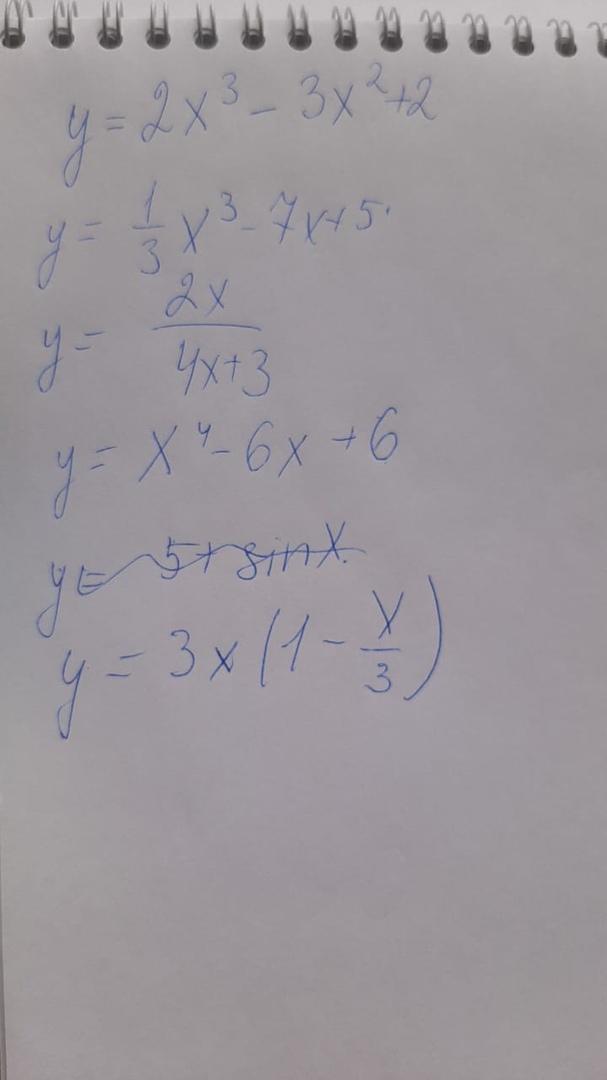 y = 2x³ - 3x² + 2
y = 1/3 x³ - 7x + 5
y = 2x/(4x+3)
y = x⁴ - 6x + 6
y = 5 + sin x
y = 3x(1 - x/3)